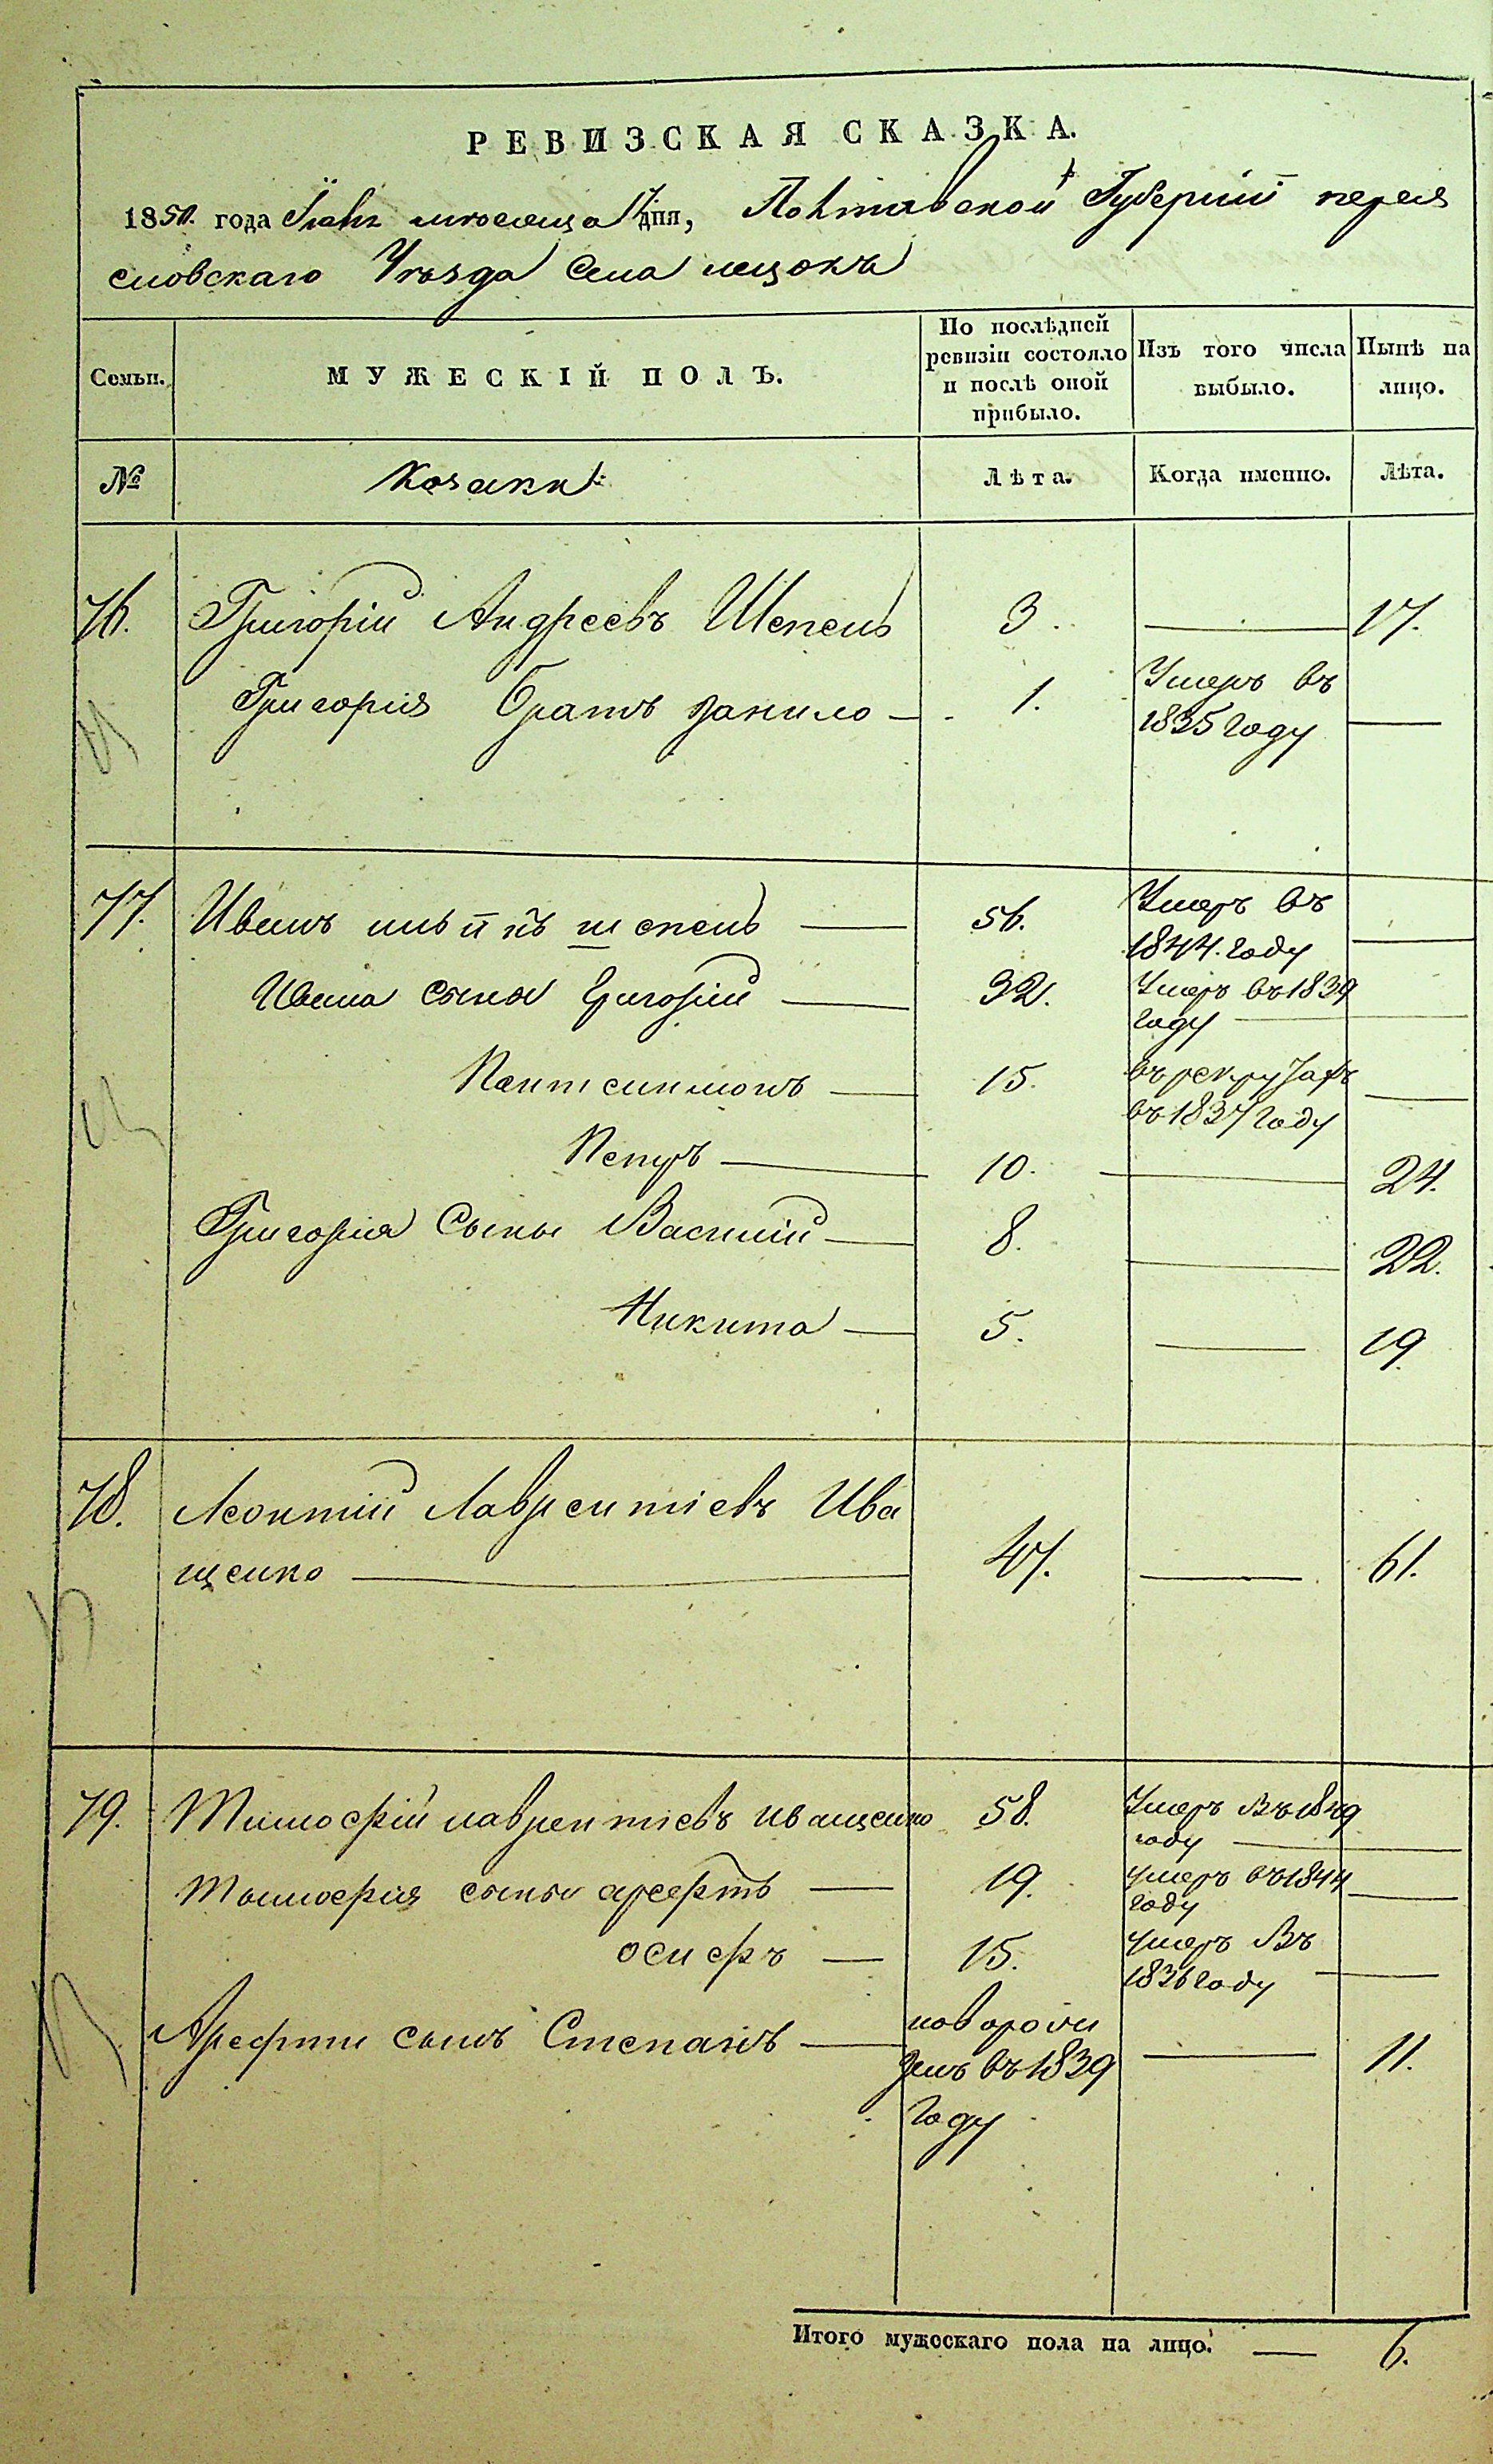 РЕВИЗСКАЯ СКАЗКА.
1850. года мѣсяца 17 дня, Полтавской Губерніи перея
словскаго Уѣзда Села
Семьи. МУЖЕСКІЙ ПОЛЪ. По послѣдней ревизіи состояло и послѣ оной прибыло. Изъ того числа выбыло. Нынѣ на лицо.
№ Козаки: Лѣта. Когда именно. Лѣта.
76. Григорій Андреевъ Шепель 3. 17.
Григорія братъ данило 1. Умеръ въ
1835 году
77. Иванъ шепель 56. Умеръ въ
1844. году
Ивана сыны Григорій 32. Умеръ въ 1839
году
Пантелимонъ 15. въ рекрутахъ
въ 1837 году
Петръ 10. 24.
Григорія Сыны Василій 8. 22.
Никита 5. 19.
78. Леонтій Лаврентіевъ Ива
щенко 47. 61.
79. Тимофій лаврентіевъ иващенко 58. Умеръ въ 1849
году
Тимофія сыны арефтъ 19. умеръ въ 1844
году
осифъ 15. умеръ въ
1836 году
Арефти сынъ Степанъ новорож
денъ въ 1839 11.
году
Итого мужескаго пола на лицо. 6.